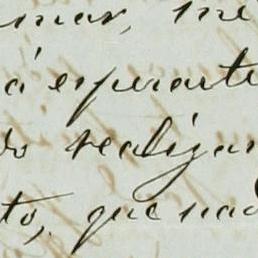 mar, me
á esperarte
do realizar
to, que nao